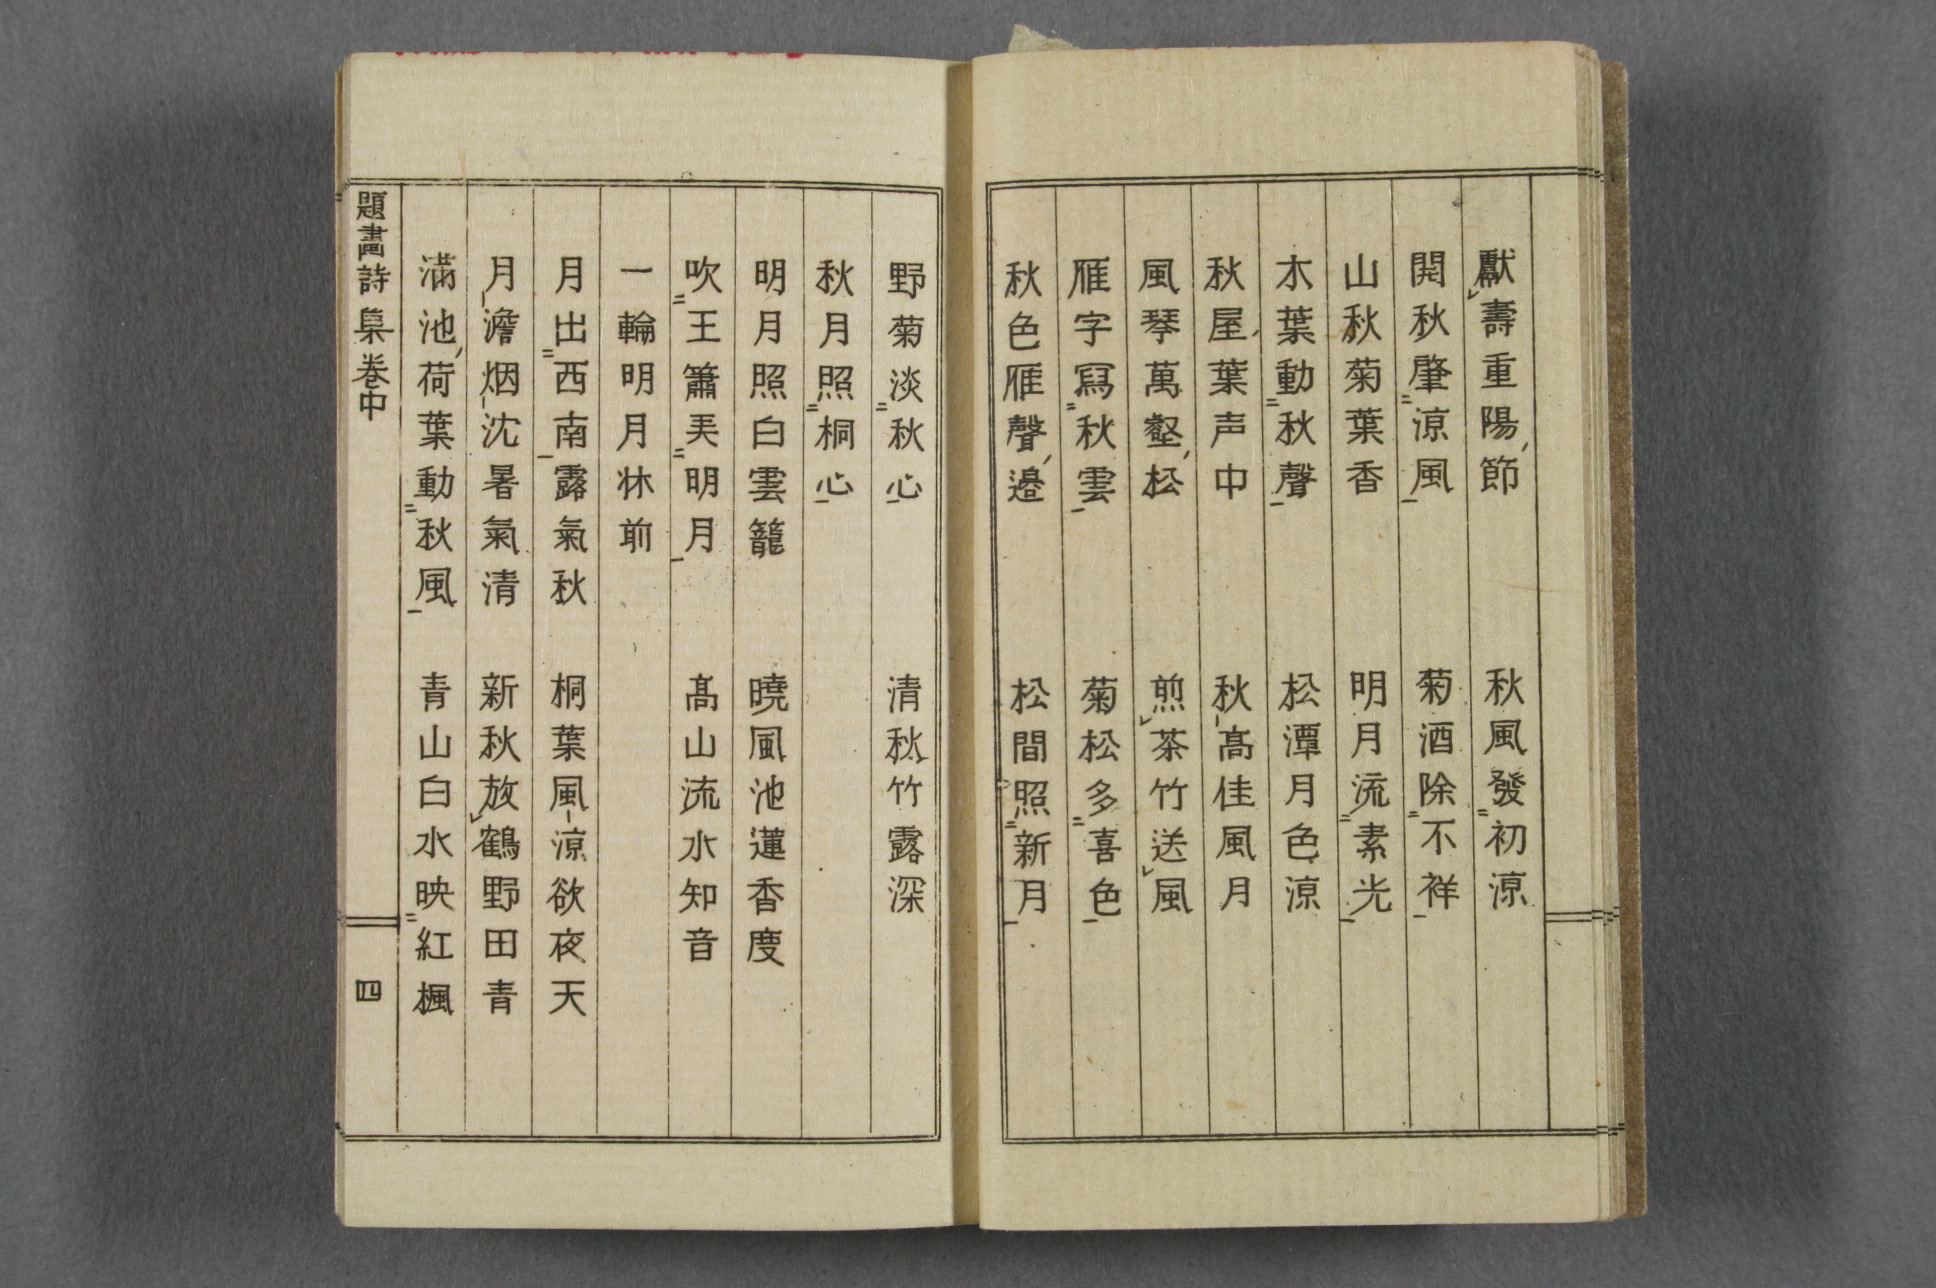 獻壽重陽節　秋風發初涼
開秋肇涼風　菊酒除不祥
山秋菊葉香　明月流素光
木葉動秋聲　松潭月色涼
秋屋葉声中　秋高佳風月
風琴萬壑松　煎茶竹送風
雁字寫秋雲　菊松多喜色
秋色雁聲邊　松間照新月
野菊淡秋心　清秋竹露深
秋月照桐心
明月照白雲籠　曉風池蓮香度
吹王簫美明月　高山流水知音
一輪明月牀前
月出西南露氣秋　桐葉風涼欲夜天
月澹烟沈暑氣清　新秋放鶴野田青
滿池荷葉動秋風　青山白水映紅楓
題畫詩集卷中　四